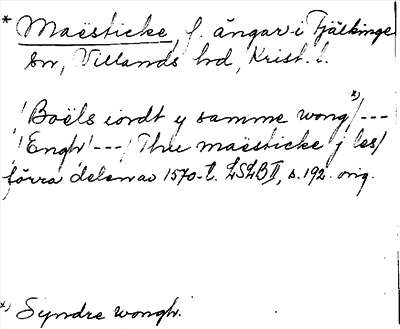 * Maësticke, f. ängar i Fjälkinge
sn, Villands hd, Krist. l.
/Boëls iordt y samme wong x)/---
/Engh/---/Thu maësticke j les/
förra delen av 1570-t. LSLB II, s. 192. orig.
x) Syndre wongh.